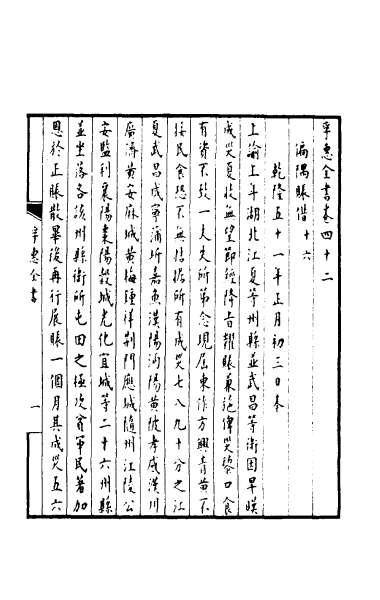 孚惠全書卷四十二
偏隅賑借十六
乾隆五十一年正月初三日奉
上諭上年湖北江夏等州縣並武昌等衛因旱暵
成災夏收無望節經降旨撥賑兼施俾災黎口食
有資不致一夫失所第念現屆東作方興青黃不
接民食恐不無拮据所有成災七八九十分之江
夏武昌咸寧蒲圻嘉魚漢陽沔陽黃陂孝感漢川
廣濟黃安麻城黃梅鍾祥荆門應城隨州江陵公
安監利襄陽棗陽穀城光化宜城等二十六州縣
並坐落各該州縣衛所屯田之極次貧軍民著加
恩於正賑散畢後再行展賑一個月其成災五六
孚惠全書
一